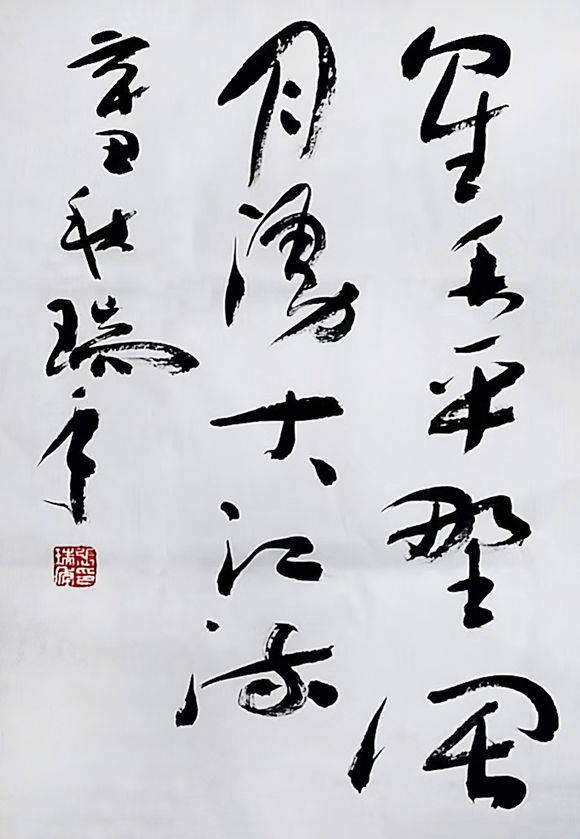 星垂平野阔
月涌大江流
辛丑秋瑞